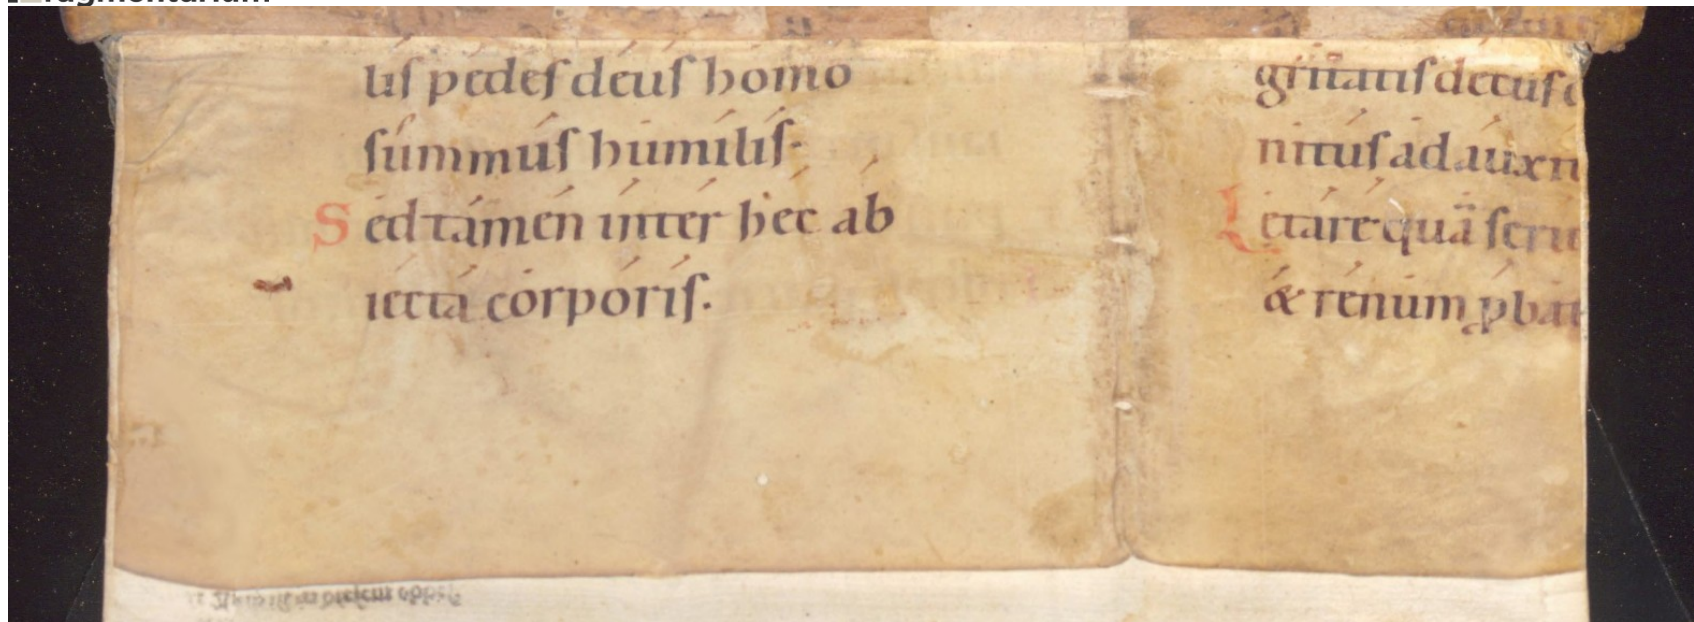 lis pedes deus homo
summus humilis.
Sed tamen inter hec ab
iecta corporis.
gritatis decus
nitus ad auxit
Letare quā scru
& renum ꝓbat